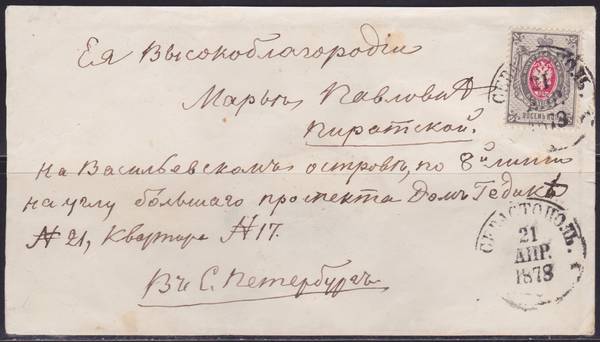 Ея Высокоблагородiи
Марьи Павловнѣ
Пиратской.
на Васильевскомъ островѣ, по 8й линiи
на углу большаго проспекта Домъ Гедике
№ 21, Квартира №17.
Въ С. Петербургъ
СЕВАСТОПОЛЬ.
1878
ВОСЕМЬ
СЕВАСТОПОЛЬ.
21
АПР.
1878